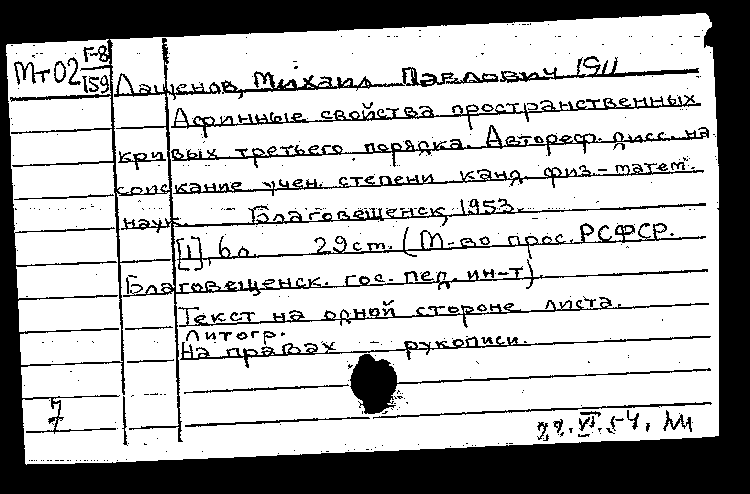 Мт02 Г-8
159
Лащенов, Михаил Павлович 1911
Афинные свойства пространственных
кривых третьего порядка. Автореф. дисс. на
соискание учен. степени канд. физ.-матем.
наук. Благовещенск, 1953.
[1], 6 л. 29 ст. (М-во прос. РСФСР.
Благовещенск. гос. пед. ин-т).
Текст на одной стороне листа.
Литогр.
На правах - рукописи.
7
22.VI.54.